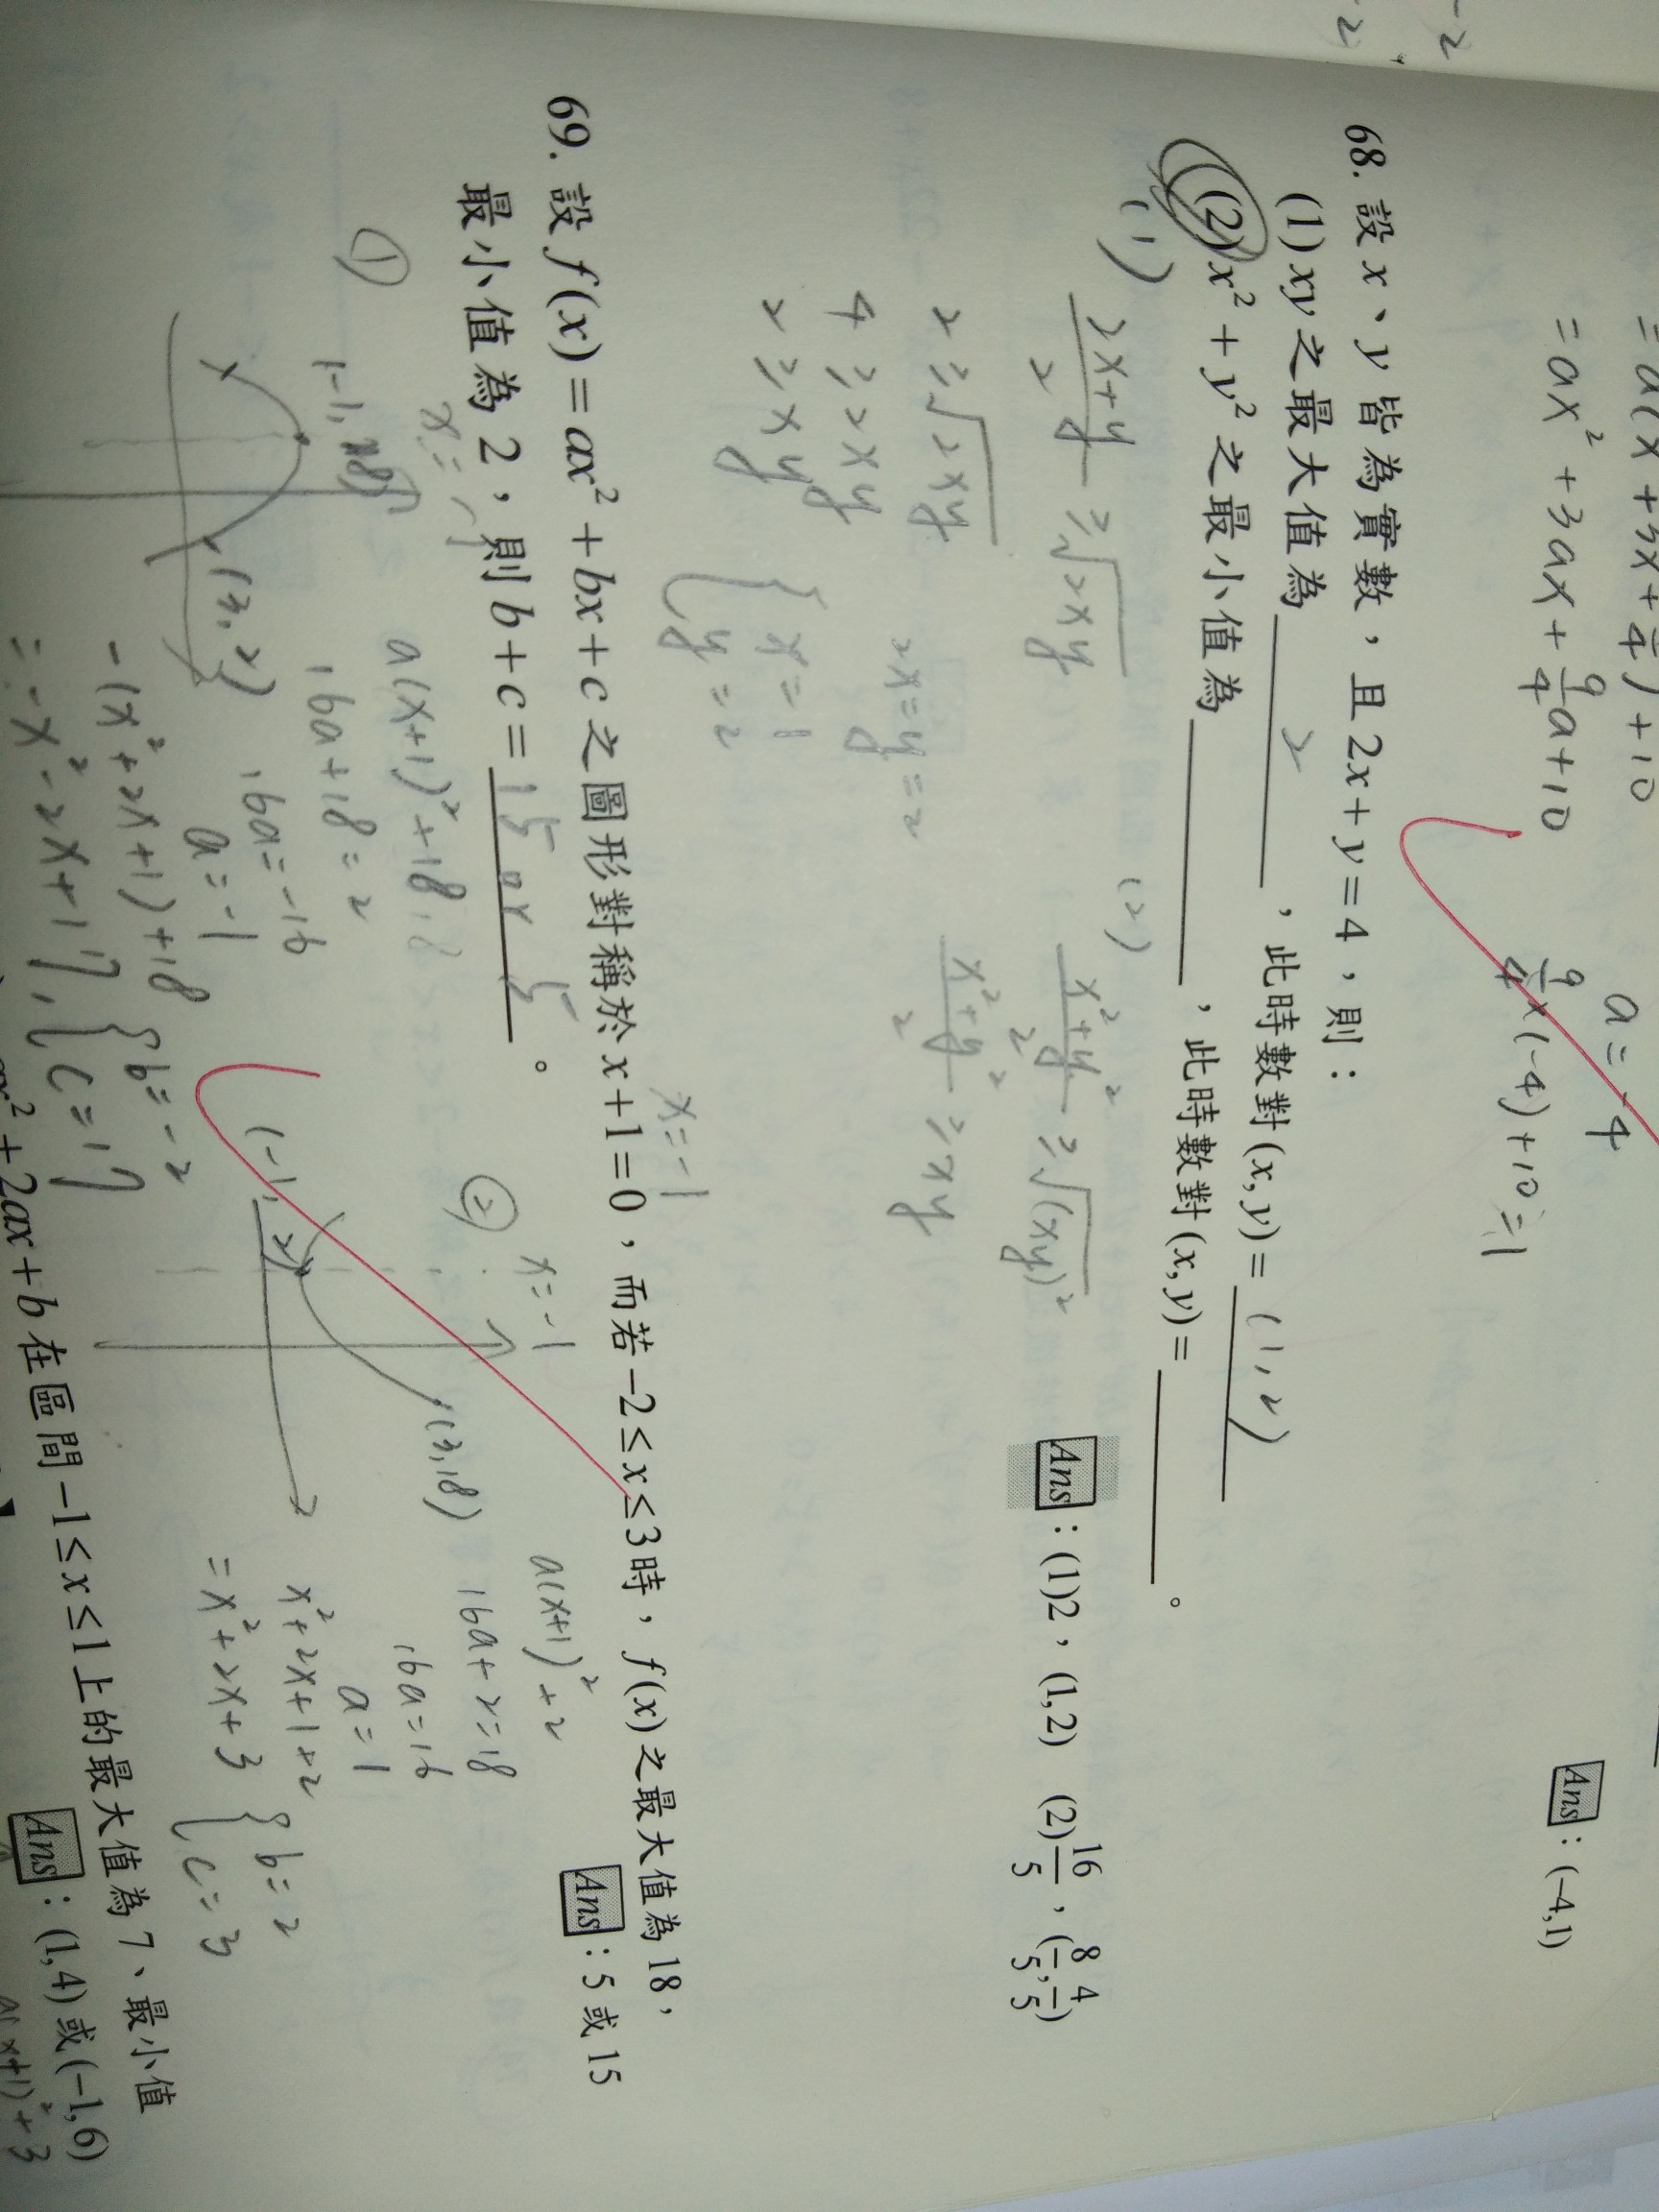 = ax² + 3ax + 9/4 a + 10
a = -4
9/4 x(-4) + 10 = 1
Ans : (-4,1)
68. 設 x、y 皆為實數，且 2x + y = 4，則：
(1) xy 之最大值為 2 ，此時數對 (x, y) = (1, 2)
(2) x² + y² 之最小值為 ，此時數對 (x, y) = 。
Ans : (1)2，(1,2) (2)16/5，(8/5, 4/5)
(1)
2x+y/2 ≥ √2xy
2 ≥ √2xy
4 ≥ 2xy
2 ≥ xy
2x = y = 2
{ x = 1
y = 2
(2)
x²+y²/2 ≥ √(xy)²
x²+y²/2 ≥ xy
x = -1
69. 設 f(x) = ax² + bx + c 之圖形對稱於 x + 1 = 0，而若 -2 ≤ x ≤ 3 時，f(x) 之最大值為 18，
最小值為 2，則 b + c = 15 or 5 。
Ans : 5 或 15
①
x = -1
(3, 2)
a(x+1)² + 18
16a + 18 = 2
16a = -16
a = -1
-(x² + 2x + 1) + 18
= -x² - 2x + 17, { b = -2
c = 17
②
x = -1
(-1, 2)
(3, 18)
a(x+1)² + 2
16a + 2 = 18
16a = 16
a = 1
x² + 2x + 1 + 2
= x² + 2x + 3 { b = 2
c = 3
x² + 2ax + b 在區間 -1 ≤ x ≤ 1 上的最大值為 7、最小值
Ans : (1,4) 或 (-1,6)
a(x+1)² + 3